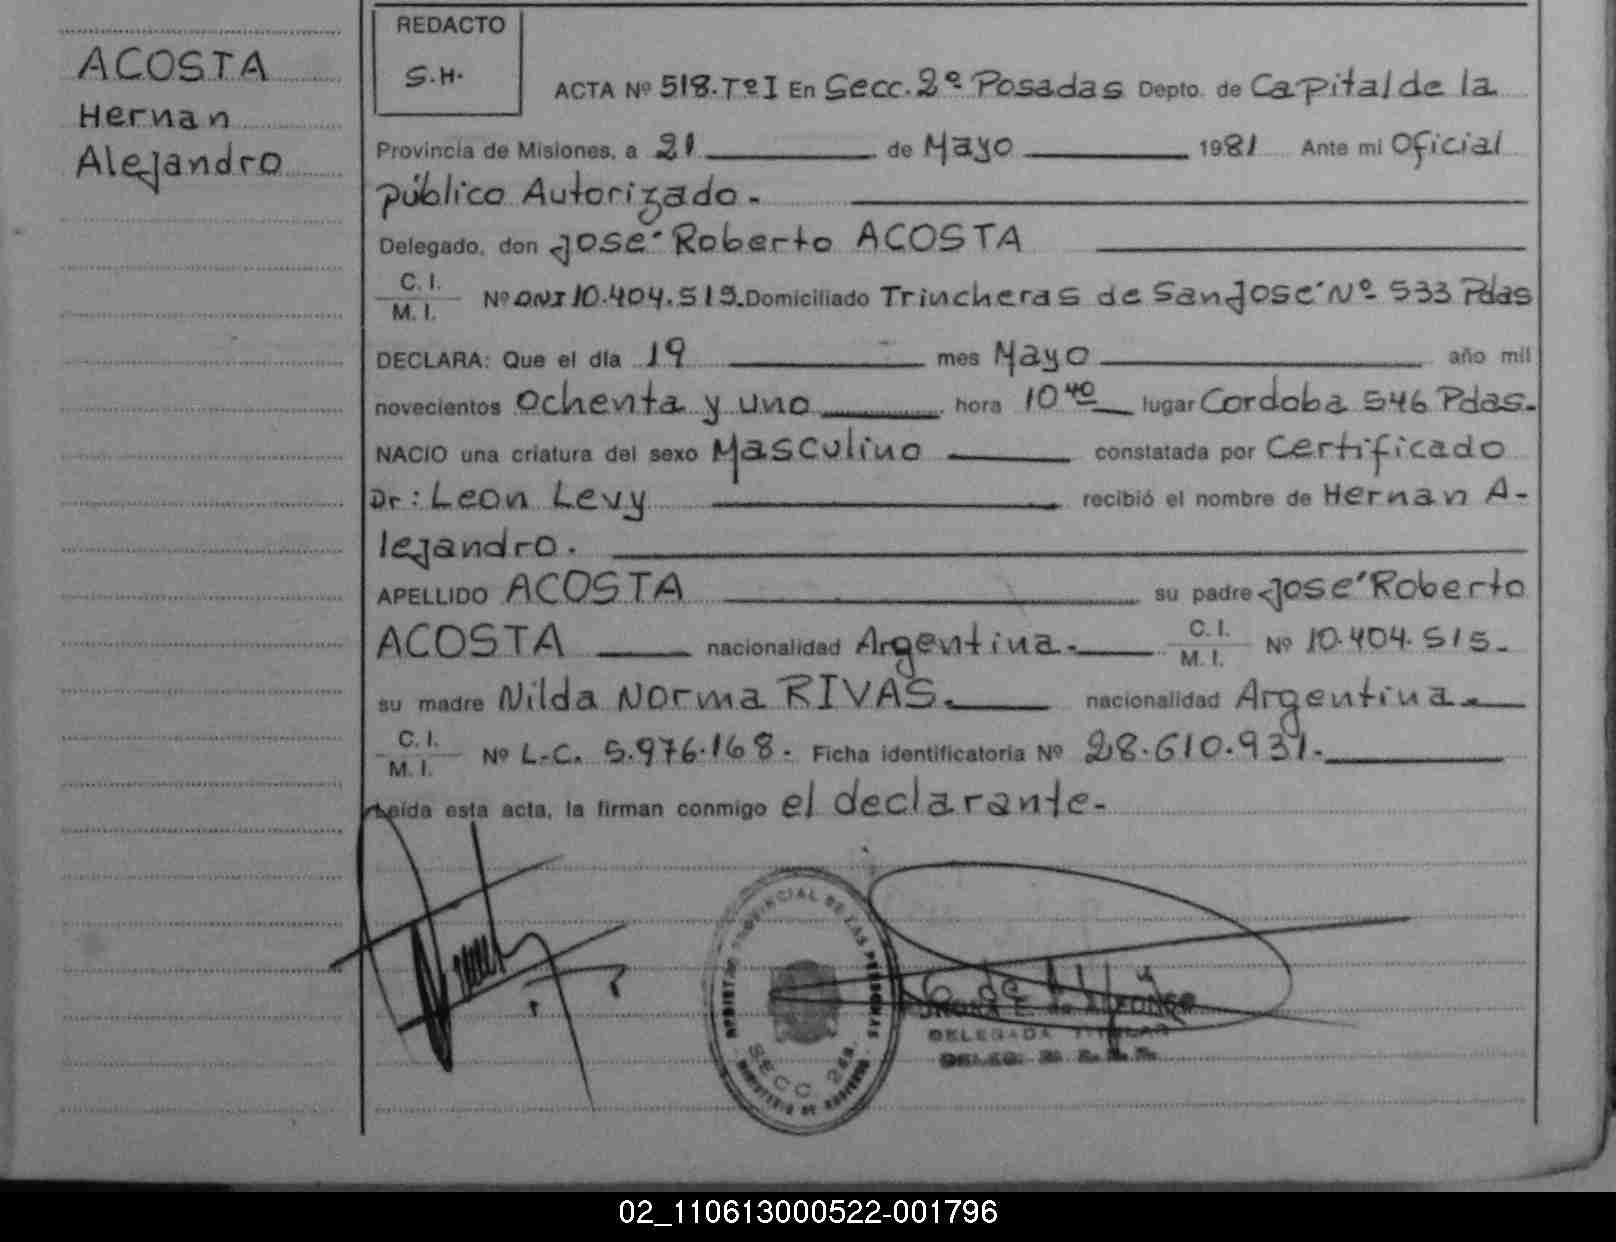 ACOSTA
Hernan
Alejandro
REDACTO
S.H.
ACTA Nº 518.TºI En Secc. 2º Posadas Depto. de Capital de la
Provincia de Misiones, a 21 de Mayo 1981 Ante mi Oficial
público Autorizado.-
Delegado, don José Roberto ACOSTA
C. I.
M. I.
Nº DNI 10.404.515. Domiciliado Trincheras de San José Nº 533 Pdas
DECLARA: Que el día 19 mes Mayo año mil
novecientos ochenta y uno hora 10 40 lugar Cordoba 546 Pdas.-
NACIO una criatura del sexo Masculino constatada por Certificado
Dr: Leon Levy recibió el nombre de Hernan A-
lejandro.
APELLIDO ACOSTA su padre José Roberto
ACOSTA nacionalidad Argentina.- C. I. M. I. Nº 10.404.515.-
su madre Nilda Norma RIVAS.- nacionalidad Argentina.-
C. I.
M. I.
Nº L-C. 5.976.168.- Ficha identificatoria Nº 28.610.931.-
Leída esta acta, la firman conmigo el declarante.-
REGISTRO PROVINCIAL DE LAS PERSONAS
SECC. 2da.
MINISTERIO DE GOBIERNO
DELEGADA TITULAR
02_110613000522-001796